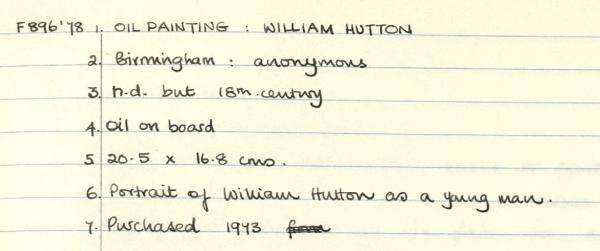 F896'78 1. OIL PAINTING : WILLIAM HUTTON
2. Birmingham : anonymous
3. n.d. but 18th.century
4. Oil on board
5. 20.5 x 16.8 cms.
6. Portrait of William Hutton as a young man.
7. Purchased 1973 from